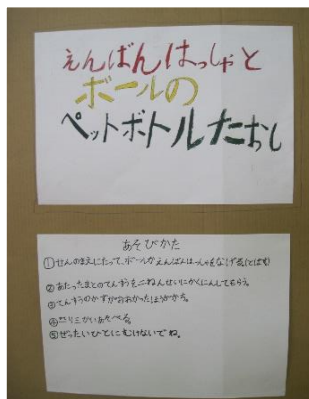 えんばんはっしゃと
ボールの
ペットボトルたおし
あそびかた
①せんのまえにたって、ボールかえんばんはっしゃをなげる(とばす)
②あたったまとのてんすうを二ねんせいにかくにんしてもらう。
③てんすうのかずがおおかったほうがかち。
④三かいあそべる。
⑤ぜったいひとにむけないでね。